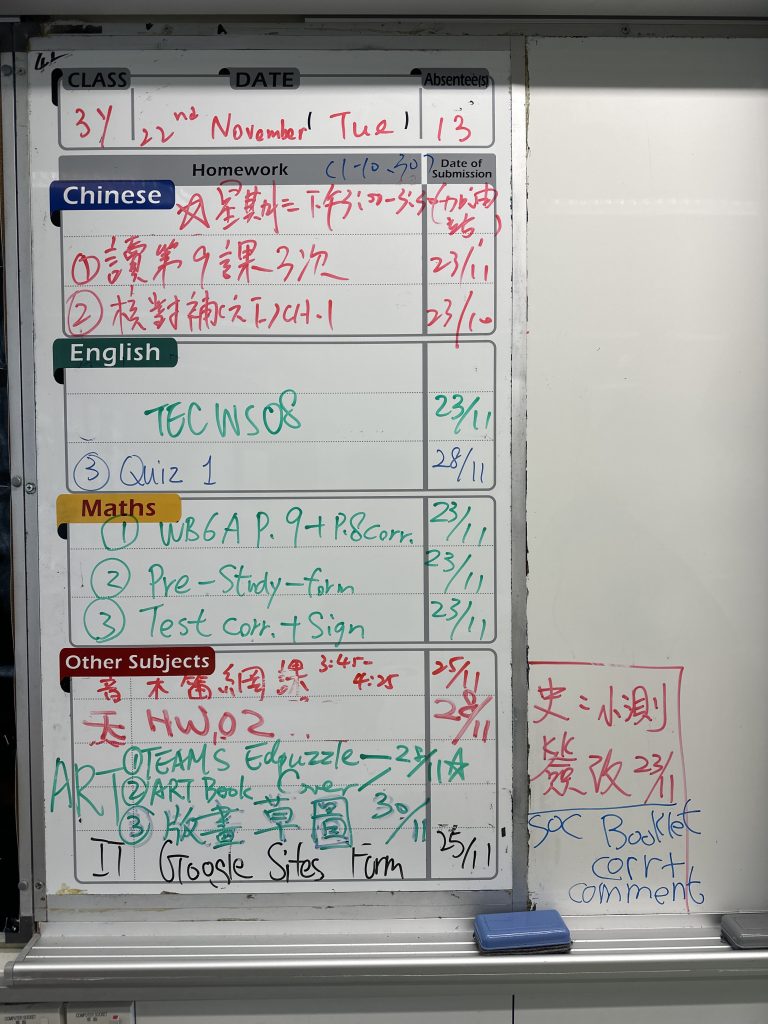 CLASS DATE Absentee(s)
3Y 22nd November (Tue) 13
Homework (1-10, 30) Date of Submission
Chinese
星期二下午3:00-3:
①讀第9課3次 23/11
②核對補(六下)CH.1 23/10
English
TEC WS08 23/11
③ Quiz 1 28/11
Maths
① WB6A P.9+P.8corr. 23/11
② Pre-Study-form 23/11
③ Test corr.+Sign 23/11
Other Subjects
音 網課 3:45-4:25 25/11
HW02 28/11
ART ①TEAMS Edpuzzle — 11☆
②ART Book Cover
③ 版畫草圖 30/11
IT Google Sites Form 25/11
史:小測
簽改 23/11
SOC Booklet
corr+
comment
COMPUTER SOCKET
COMPUTER SOCKET